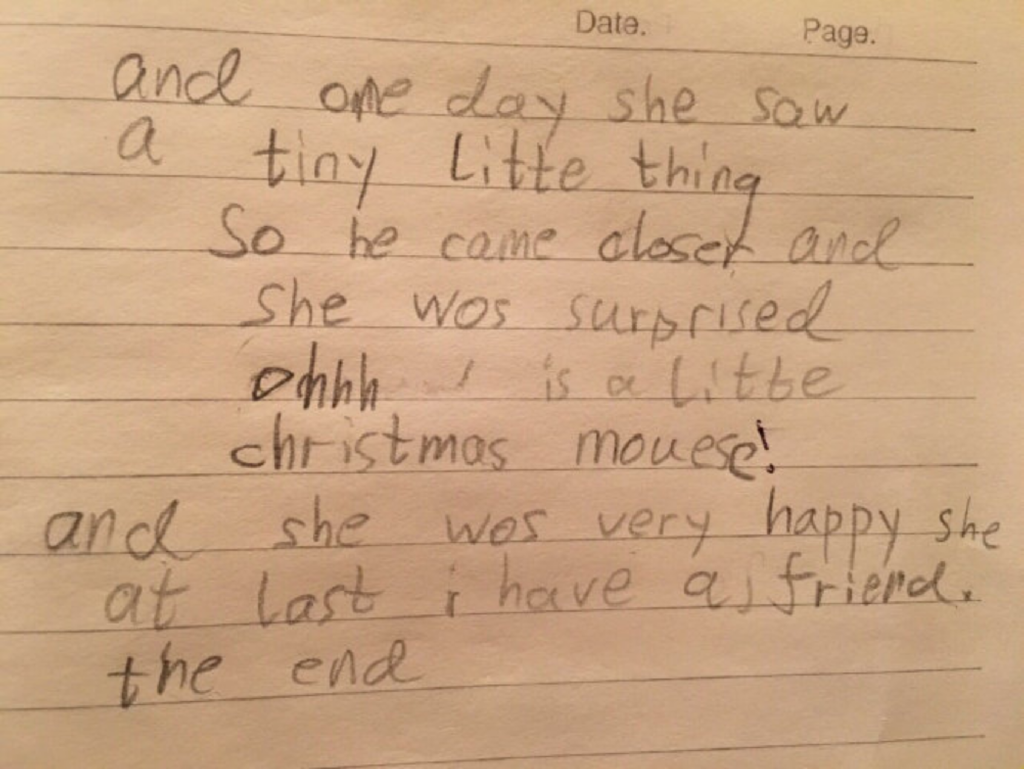 Date. Page.
and one day she saw
a tiny litte thing
So he came closer and
she wos surprised
ohhh is a litte
christmas mouese!
and she wos very happy she
at last i have a friend.
the end